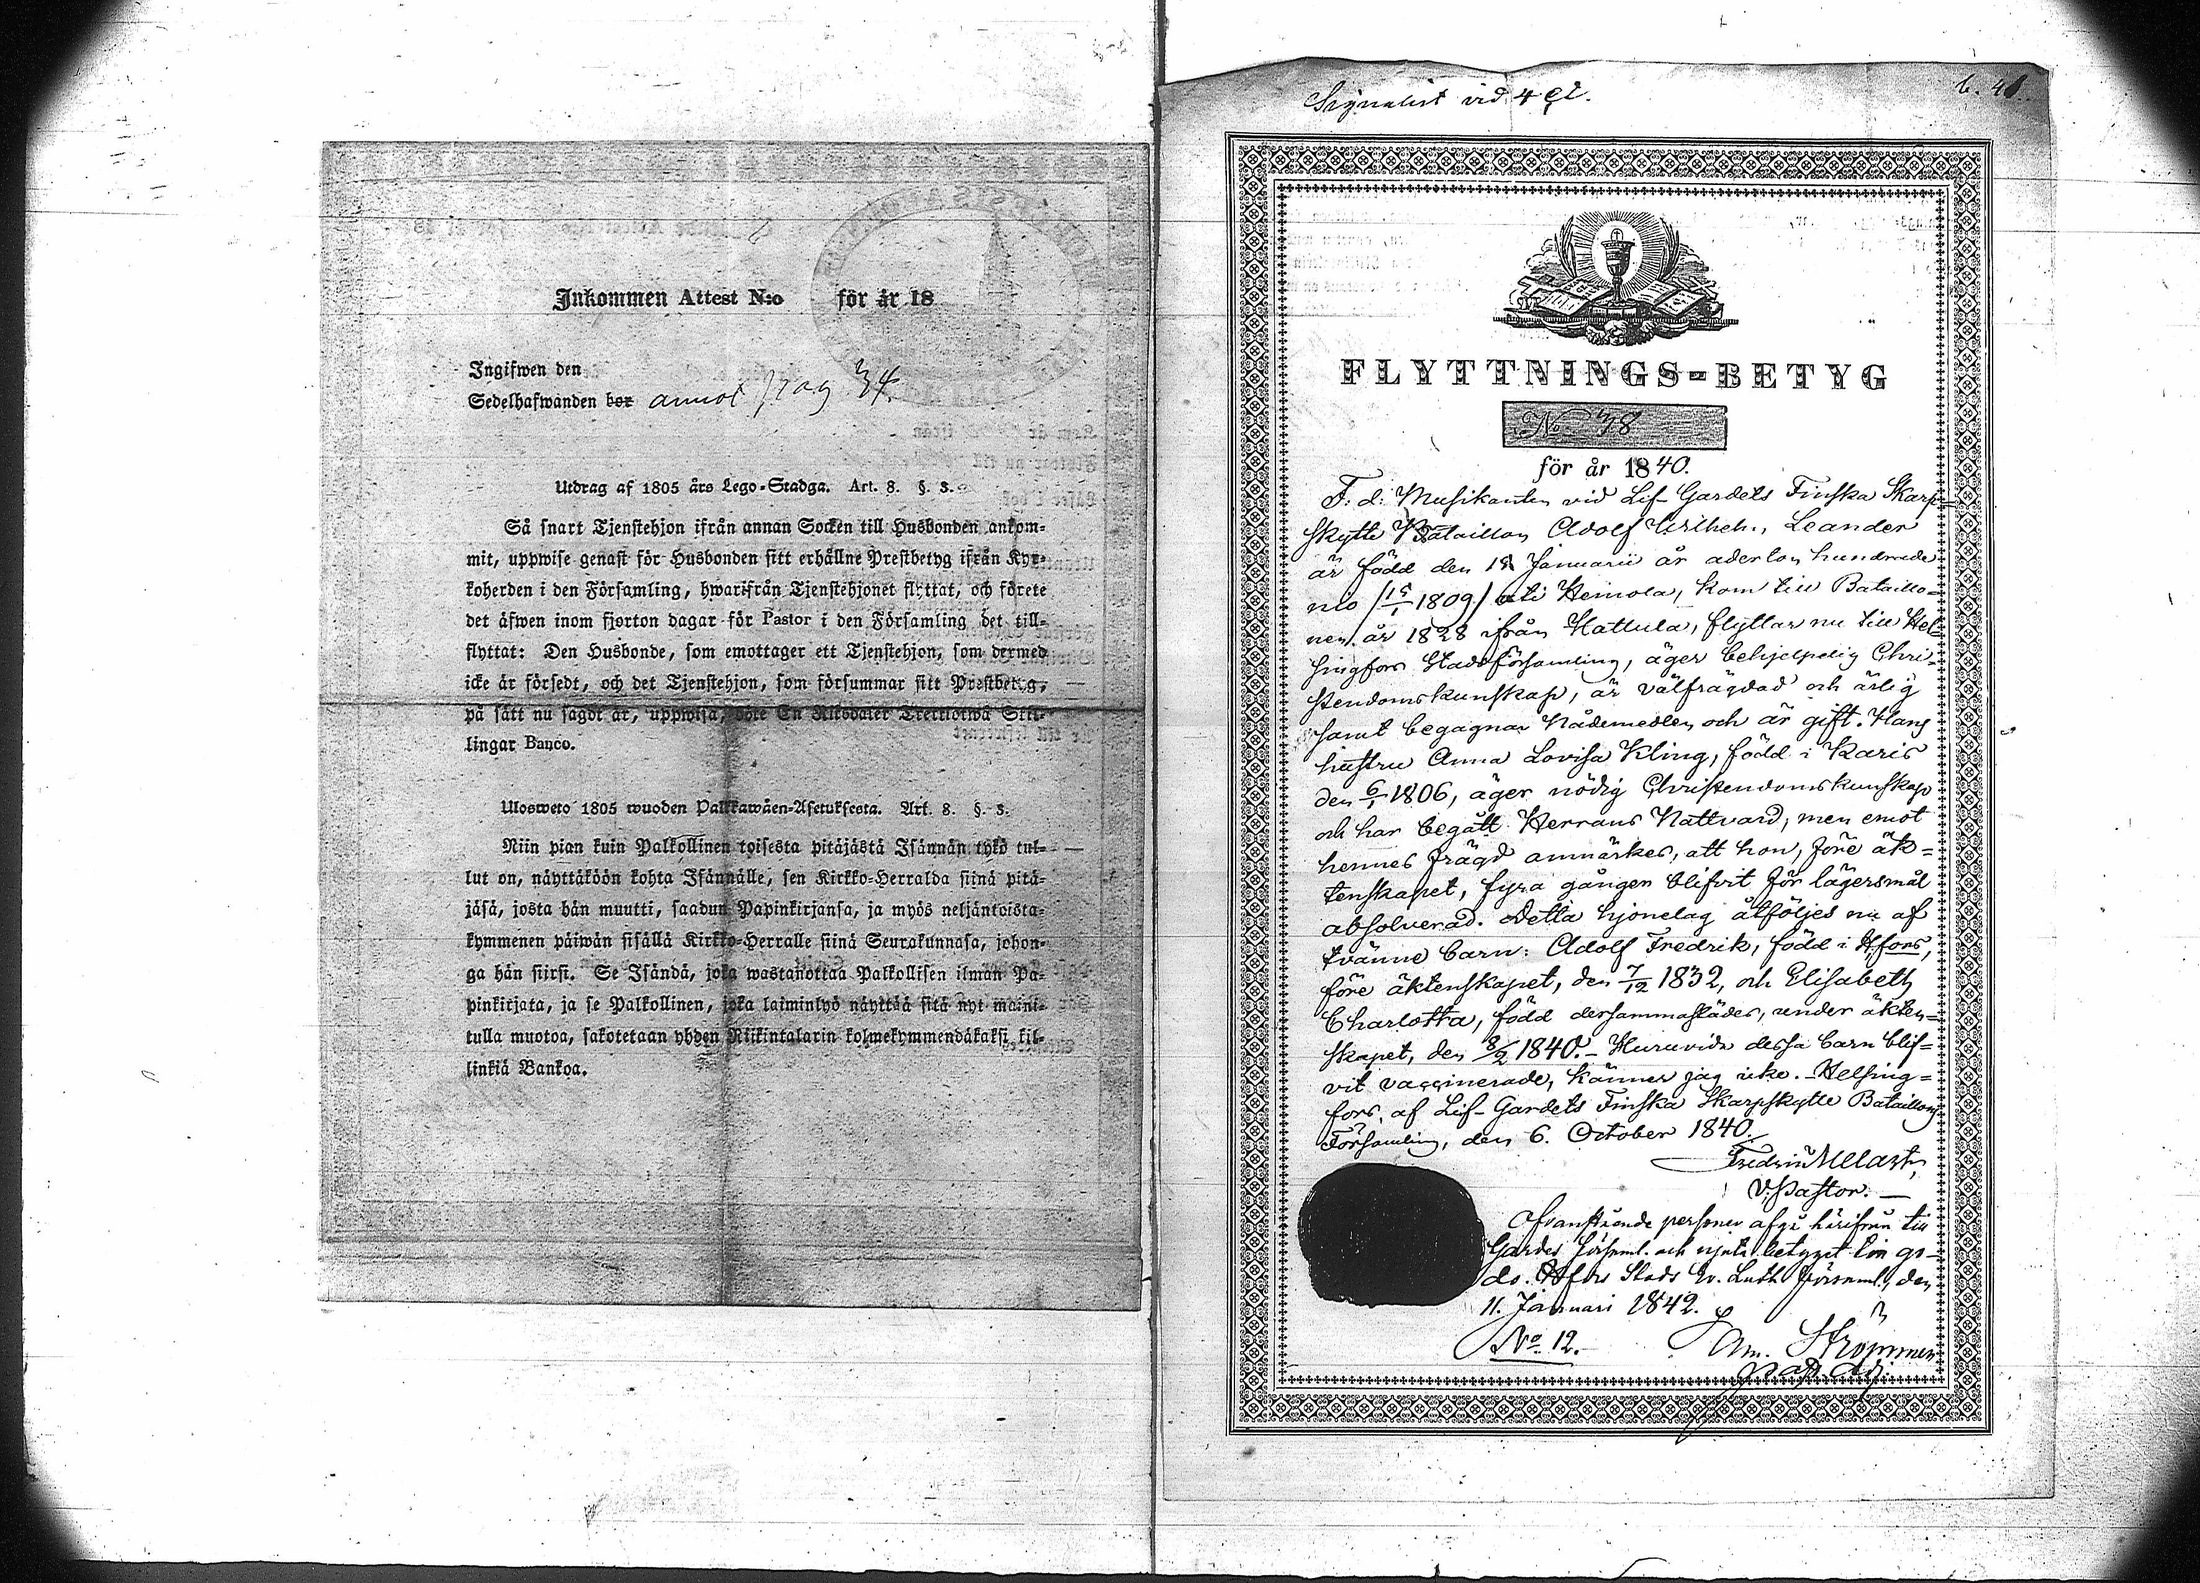 Inkommen Attest N:o för år 18
Ingifwen den
Sedelhafwanden bor annot pag 34.
Utdrag af 1805 års Lego-Stadga. Art. 8. §. 3.
Så snart Tjenstehjon ifrån annan Socken till Husbonden ankom-
mit, uppwise genast för Husbonden sitt erhållne Prestbetyg ifrån Kyr-
koherden i den Församling, hwarifrån Tjenstehjonet flyttat, och förete
det äfwen inom fjorton dagar för Pastor i den Församling det till-
flyttat: Den Husbonde, som emottager ett Tjenstehjon, som dermed
icke är försedt, och det Tjenstehjon, som försummar sitt Prestbetyg,
på sätt nu sagdt är, uppwisa, böte En Riksdaler Trettiotwå Skil-
lingar Banco.
Ulosweto 1805 wuoden Palkkawäen-Asetuksesta. Art. 8. §. 3.
Niin pian kuin Palkollinen toisesta pitäjästä Isännän tykö tul-
lut on, näyttäköön kohta Isännälle, sen Kirkko-Herralda siinä pitä-
jäsä, josta hän muutti, saadun Papinkirjansa, ja myös neljäntoista-
kymmenen päiwän sisällä Kirkko-Herralle siinä Seurakunnasa, johon-
ga hän siirsi. Se Isändä, joka wastanottaa Palkollisen ilman Pa-
pinkirjata, ja se Palkollinen, joka laiminlyö näyttää sitä nyt maini-
tulla muotoa, sakotetaan yhden Riikintalarin kolmekymmendäkaksi kil-
linkiä Bankoa.
Signalist vid 4 Ce.
b. 48.
FLYTTNINGS-BETYG
No. 38
för år 1840.
F. d. Musikanten vid Lif-Gardets Finska Skarp-
skytte Bataillon Adolf Wilhelm Leander
är född den 15 Januarii år aderton hundrade
nio /15/1 1809/ uti Heinola, kom till Bataillo-
nen år 1828 ifrån Hattula, flyttar nu till Hel-
singfors Stadsförsamling, äger behjelpelig Chri-
stendomskunskap, är välfrägdad och ärlig
samt begagnar Nådemedlen och är gift. Hans
hustru Anna Lovisa Kling, född i Karis
den 6/1 1806, äger nödig Christendomskunskap
och har begått Herrans Nattvard, men emot
hennes frägd anmärkes, att hon, före äk-
tenskapet, fyra gånger blifvit för lägersmål
absolverad. Detta hjonelag åtföljes nu af
tvänne barn: Adolf Fredrik, född i Hfors,
före äktenskapet, den 7/12 1832, och Elisabeth
Charlotta, född dersammastädes, under äkten-
skapet, den 8/2 1840. - Huruvida dessa barn blif-
vit vaccinerade, känner jag icke. - Helsing-
fors, af Lif-Gardets Finska Skarpskytte Bataillons
Församling, den 6. October 1840.
Fredrik
V. Pastor. -
Ofvanstående personer afgå härifrån till
Gardes Församl. och njuta betyget till go-
do. Hfors Stads Ev. Luth. församl., den
11. Januari 1842.
No. 12.